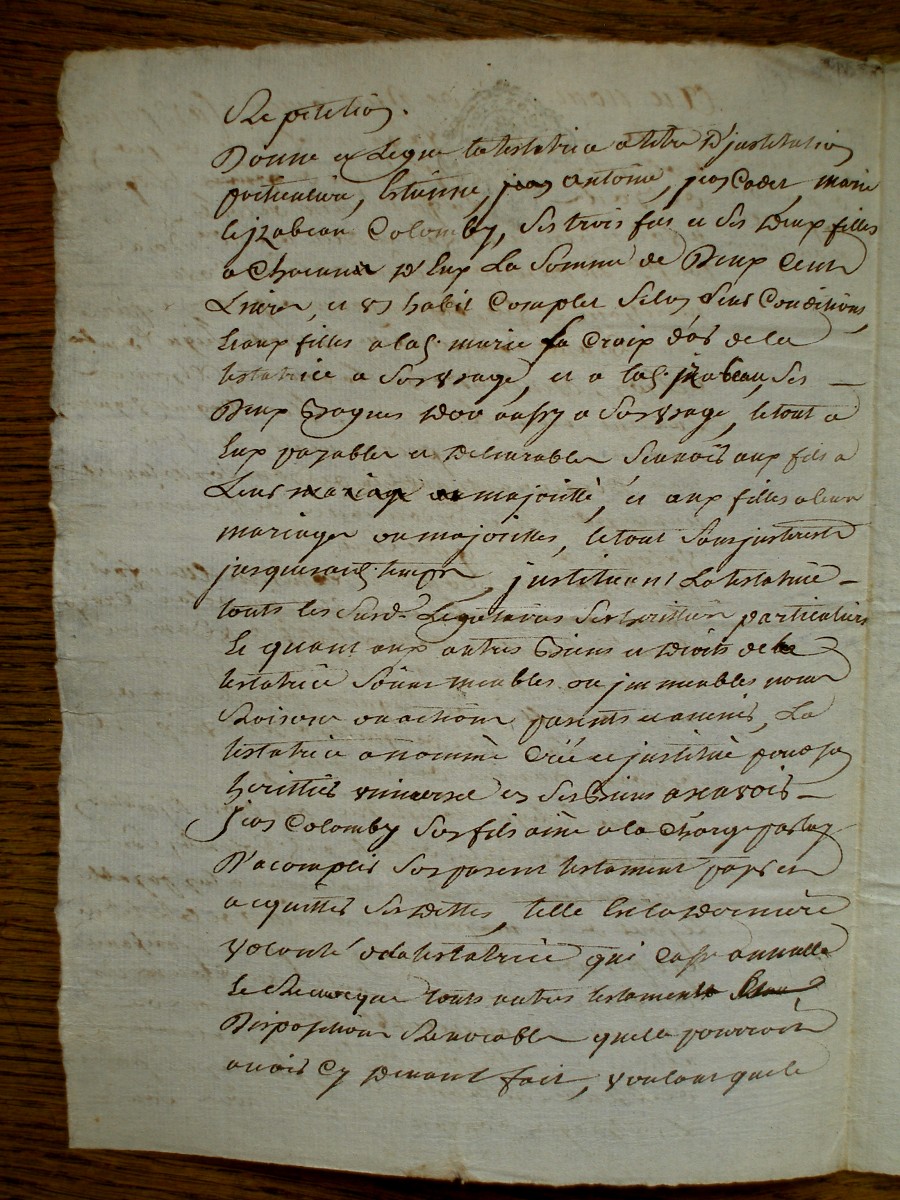 Repetition.
Donne et Legue la testatrice a titre D'justitution
particuliere, Estienne, jean antoine, jean Cadet, marie
et jzabeau Colomby, ses trois fils et ses Deux filles
a Chacun D'Eux La somme de Deux Cent
Livres, et un habit Complet selon Leur Condition,
Et aux filles a lad. marie la Croix D'or de la
testatrice a son usage, et a lad. jzabeau, ses
Deux Bagues D'or aussy a son usage, le tout a
Eux payable et Delivrable scavoir aux fils a
Leur majoritté, et aux filles a leur
mariage ou majorittés, le tout sans jnterest
jusques aud. temps, jnstituant La testatrice
touts les susd. Legataires ses herittiers particuliers
Et quant aux autres Biens et Droits de la
testatrice soint meubles ou jmmeubles noms
Raisons ou actions presents et avenir, La
testatrice a nommé Créé et jnstitué pour son
herittier universel en ses Biens a scavoir
jean Colomby son fils ainé a la Charge par luy
D'acomplir son present testament payer et
acquitter ses Dettes, telle Est la Derniere
volonté de la testatrice qui Casse annulle
Et Revocque touts autres testaments
Dispositions Revocables quelle pourroit
avoir Cy Devant fait, voulant que le